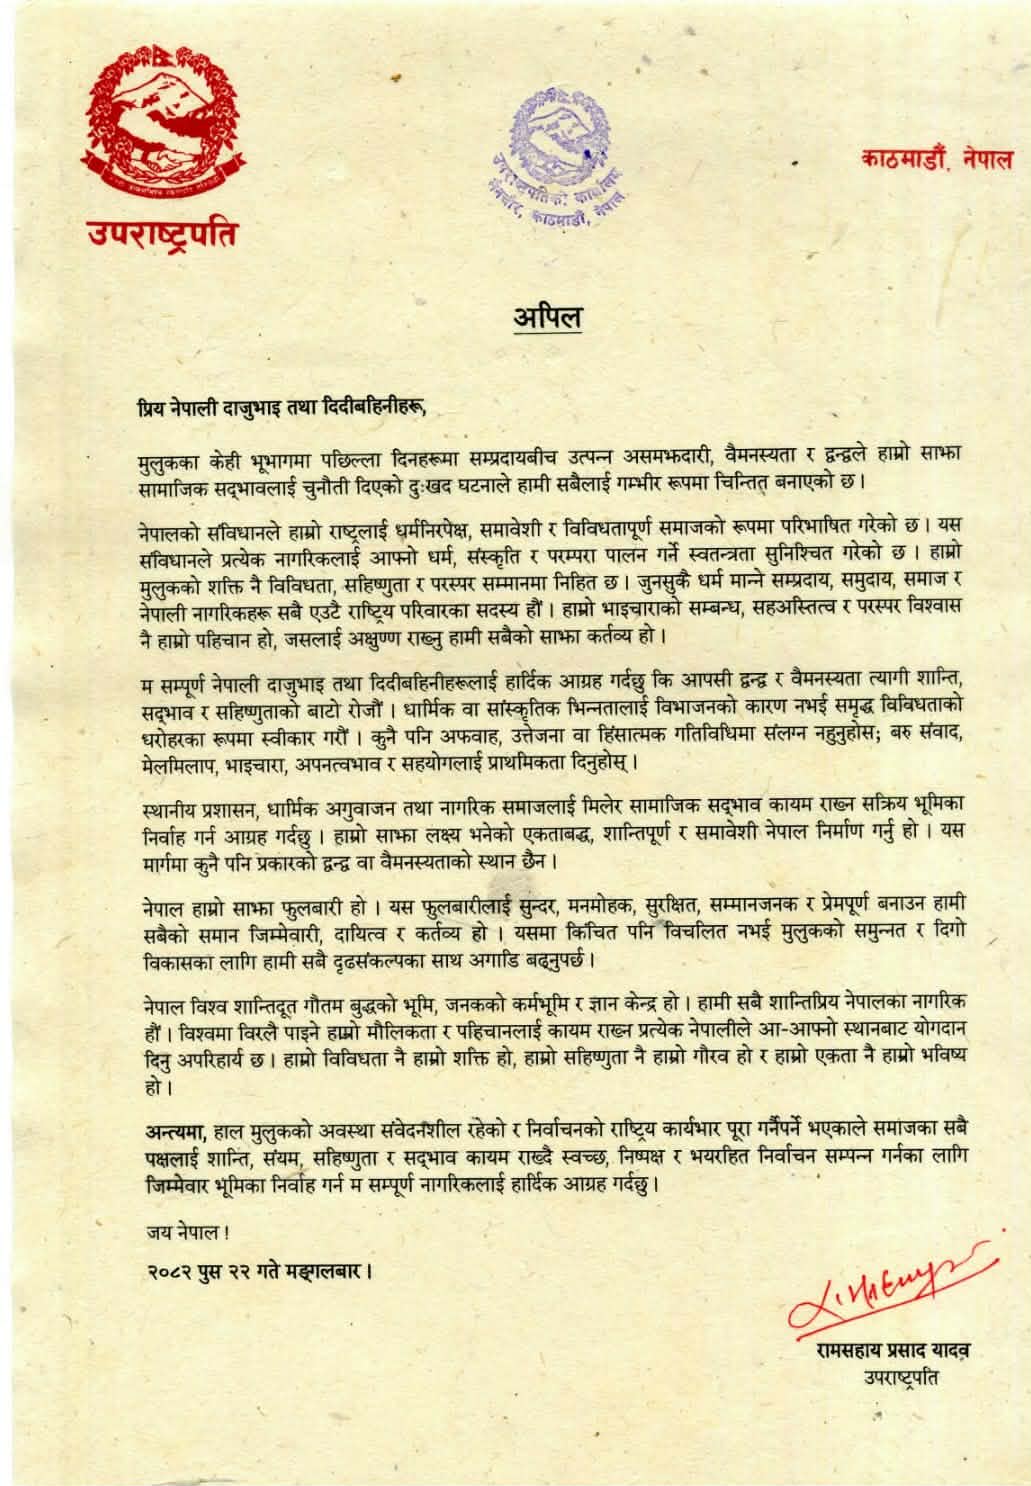 उपराष्ट्रपति
उपराष्ट्रपतिको कार्यालय
काठमाडौं, नेपाल
काठमाडौं, नेपाल
अपिल
प्रिय नेपाली दाजुभाइ तथा दिदीबहिनीहरू,
मुलुकका केही भूभागमा पछिल्ला दिनहरूमा सम्प्रदायबीच उत्पन्न असमझदारी, वैमनस्यता र द्वन्द्वले हाम्रो साझा
सामाजिक सद्‌भावलाई चुनौती दिएको दुःखद घटनाले हामी सबैलाई गम्भीर रूपमा चिन्तित बनाएको छ।
नेपालको संविधानले हाम्रो राष्ट्रलाई धर्मनिरपेक्ष, समावेशी र विविधतापूर्ण समाजको रूपमा परिभाषित गरेको छ। यस
संविधानले प्रत्येक नागरिकलाई आफ्नो धर्म, संस्कृति र परम्परा पालन गर्ने स्वतन्त्रता सुनिश्चित गरेको छ। हाम्रो
मुलुकको शक्ति नै विविधता, सहिष्णुता र परस्पर सम्मानमा निहित छ। जुनसुकै धर्म मान्ने सम्प्रदाय, समुदाय, समाज र
नेपाली नागरिकहरू सबै एउटै राष्ट्रिय परिवारका सदस्य हौं। हाम्रो भाइचाराको सम्बन्ध, सहअस्तित्व र परस्पर विश्वास
नै हाम्रो पहिचान हो, जसलाई अक्षुण्ण राख्नु हामी सबैको साझा कर्तव्य हो।
म सम्पूर्ण नेपाली दाजुभाइ तथा दिदीबहिनीहरूलाई हार्दिक आग्रह गर्दछु कि आपसी द्वन्द्व र वैमनस्यता त्यागी शान्ति,
सद्‌भाव र सहिष्णुताको बाटो रोजौं। धार्मिक वा सांस्कृतिक भिन्नतालाई विभाजनको कारण नभई समृद्ध विविधताको
धरोहरका रूपमा स्वीकार गरौं। कुनै पनि अफवाह, उत्तेजना वा हिंसात्मक गतिविधिमा संलग्न नहुनुहोस; बरु संवाद,
मेलमिलाप, भाइचारा, अपनत्वभाव र सहयोगलाई प्राथमिकता दिनुहोस्।
स्थानीय प्रशासन, धार्मिक अगुवाजन तथा नागरिक समाजलाई मिलेर सामाजिक सद्‌भाव कायम राख्न सक्रिय भूमिका
निर्वाह गर्न आग्रह गर्दछु। हाम्रो साझा लक्ष्य भनेको एकताबद्ध, शान्तिपूर्ण र समावेशी नेपाल निर्माण गर्नु हो। यस
मार्गमा कुनै पनि प्रकारको द्वन्द्व वा वैमनस्यताको स्थान छैन।
नेपाल हाम्रो साझा फुलबारी हो। यस फुलबारीलाई सुन्दर, मनमोहक, सुरक्षित, सम्मानजनक र प्रेमपूर्ण बनाउन हामी
सबैको समान जिम्मेवारी, दायित्व र कर्तव्य हो। यसमा किंचित पनि विचलित नभई मुलुकको समुन्नत र दिगो
विकासका लागि हामी सबै दृढसंकल्पका साथ अगाडि बढ्नुपर्छ।
नेपाल विश्व शान्तिदूत गौतम बुद्धको भूमि, जनकको कर्मभूमि र ज्ञान केन्द्र हो। हामी सबै शान्तिप्रिय नेपालका नागरिक
हौं। विश्वमा विरलै पाइने हाम्रो मौलिकता र पहिचानलाई कायम राख्न प्रत्येक नेपालीले आ-आफ्नो स्थानबाट योगदान
दिनु अपरिहार्य छ। हाम्रो विविधता नै हाम्रो शक्ति हो, हाम्रो सहिष्णुता नै हाम्रो गौरव हो र हाम्रो एकता नै हाम्रो भविष्य
हो।
अन्त्यमा, हाल मुलुकको अवस्था संवेदनशील रहेको र निर्वाचनको राष्ट्रिय कार्यभार पूरा गर्नैपर्ने भएकाले समाजका सबै
पक्षलाई शान्ति, संयम, सहिष्णुता र सद्‌भाव कायम राख्दै स्वच्छ, निष्पक्ष र भयरहित निर्वाचन सम्पन्न गर्नका लागि
जिम्मेवार भूमिका निर्वाह गर्न म सम्पूर्ण नागरिकलाई हार्दिक आग्रह गर्दछु।
जय नेपाल!
२०८२ पुस २२ गते मङ्गलबार।
रामसहाय प्रसाद यादव
उपराष्ट्रपति